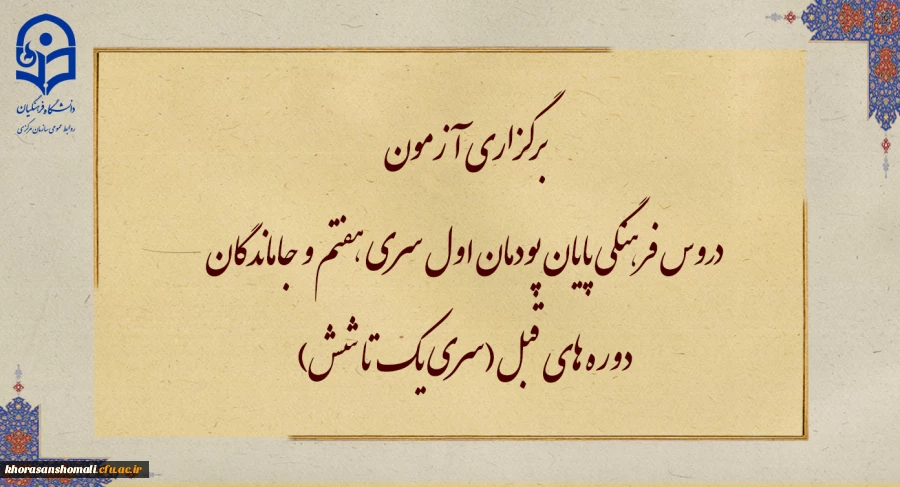 دانشگاه فرهنگیان
روابط عمومی سازمان مرکزی
برگزاری آزمون
دروس فرهنگی پایان پودمان اول سری هفتم و جاماندگان
دوره های قبل (سری یک تا شش)
khorasanshomali.cfu.ac.ir